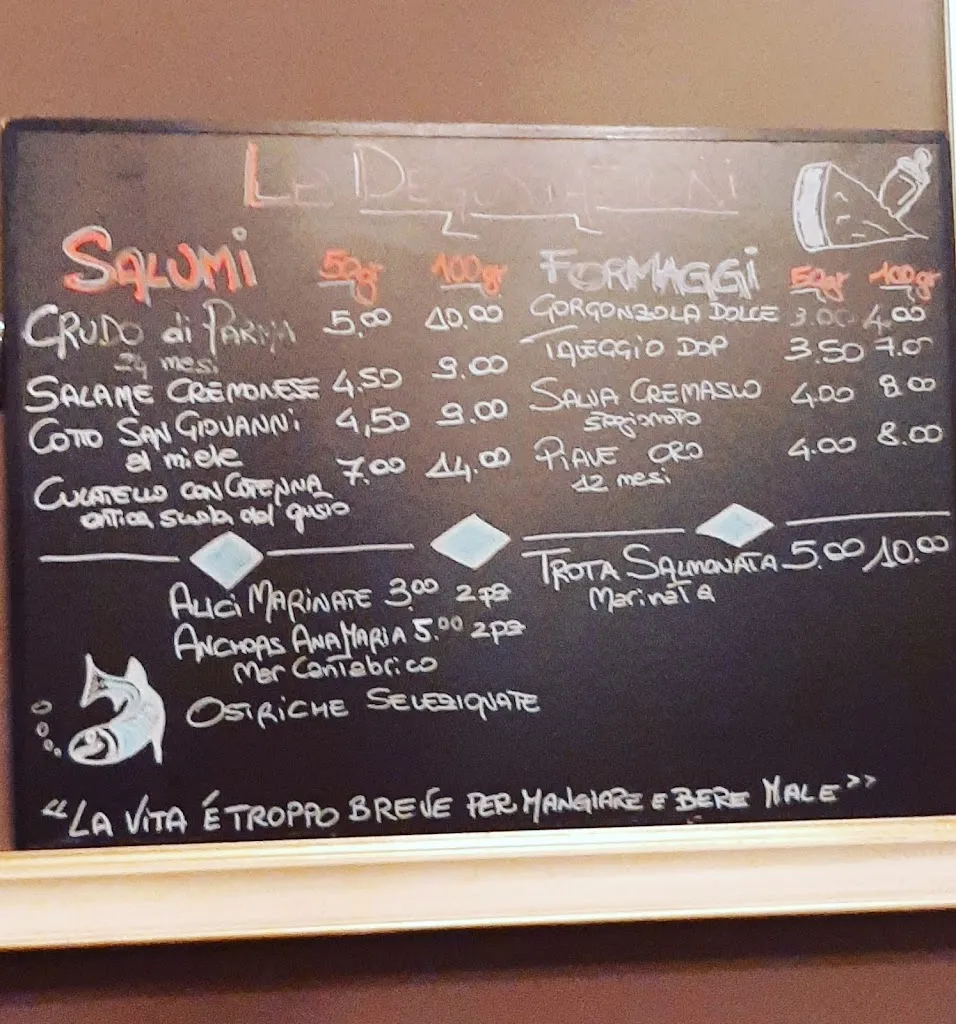 Le Degustazioni
SALUMI 50gr 100gr
CRUDO di PARMA 5,00 10.00
24 mesi
SALAME CREMONESE 4.50 9.00
COTTO SAN GIOVANNI 4,50 9.00
al miele
CULATELLO CON COTENNA 7.00 14.00
antica scuola del gusto
FORMAGGI 50gr 100gr
GORGONZOLA DOLCE 3.00 4.00
TALEGGIO DOP 3.50 7.00
SALVA CREMASCO 4.00 8.00
stagionato
PIAVE ORO 4.00 8.00
12 mesi
ALICI MARINATE 3.00 2pz
ANCHOAS ANAMARIA 5.00 2pz
Mar Cantabrico
OSTRICHE SELEZIONATE
TROTA SALMONATA 5.00 10.00
Marinata
“LA VITA É TROPPO BREVE PER MANGIARE E BERE MALE”